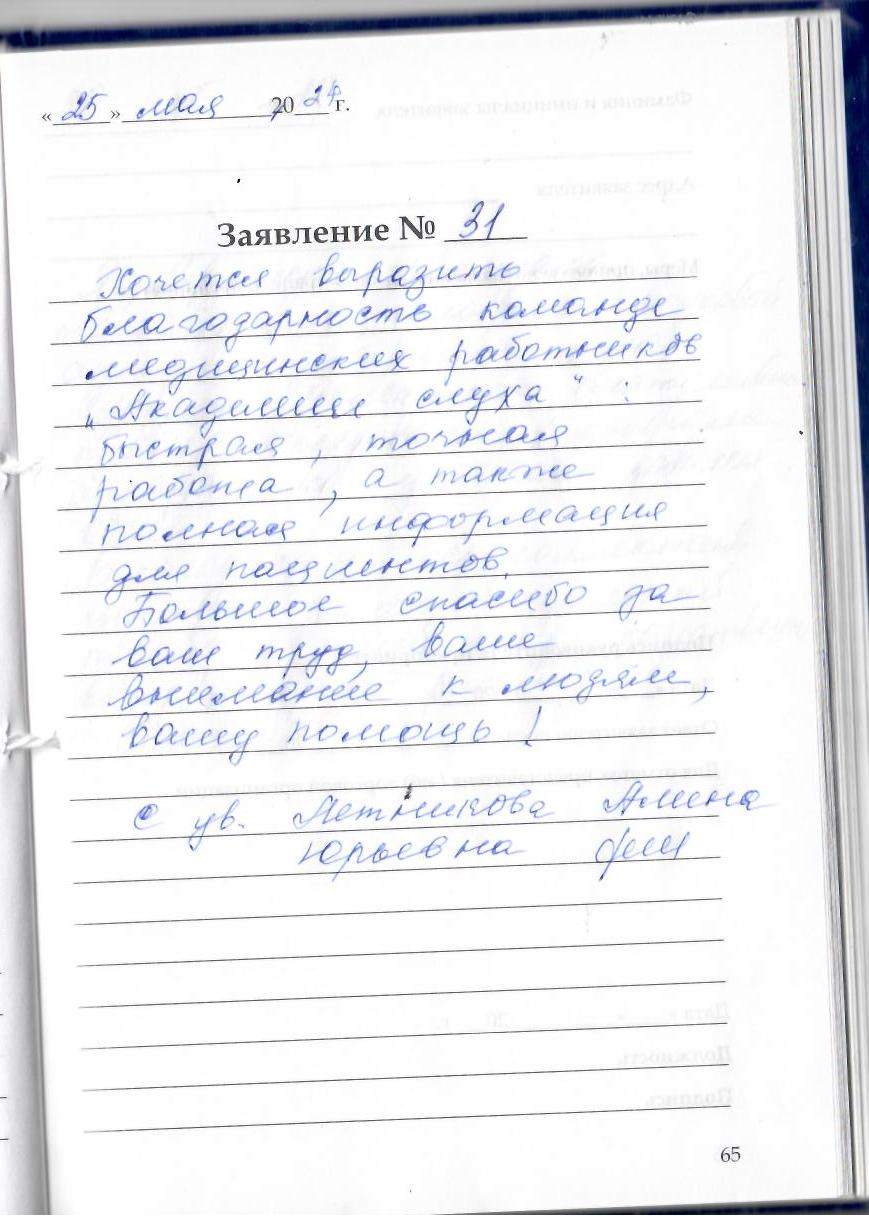 «25» мая 2024 г.
Заявление № 31
Хочется выразить
благодарность команде
медицинских работников
„Академии слуха" :
быстрая, точная
работа, а также
полная информация
для пациентов.
Большое спасибо за
ваш труд, ваше
внимание к людям,
вашу помощь!
С ув. Летникова Алина
Юрьевна
65